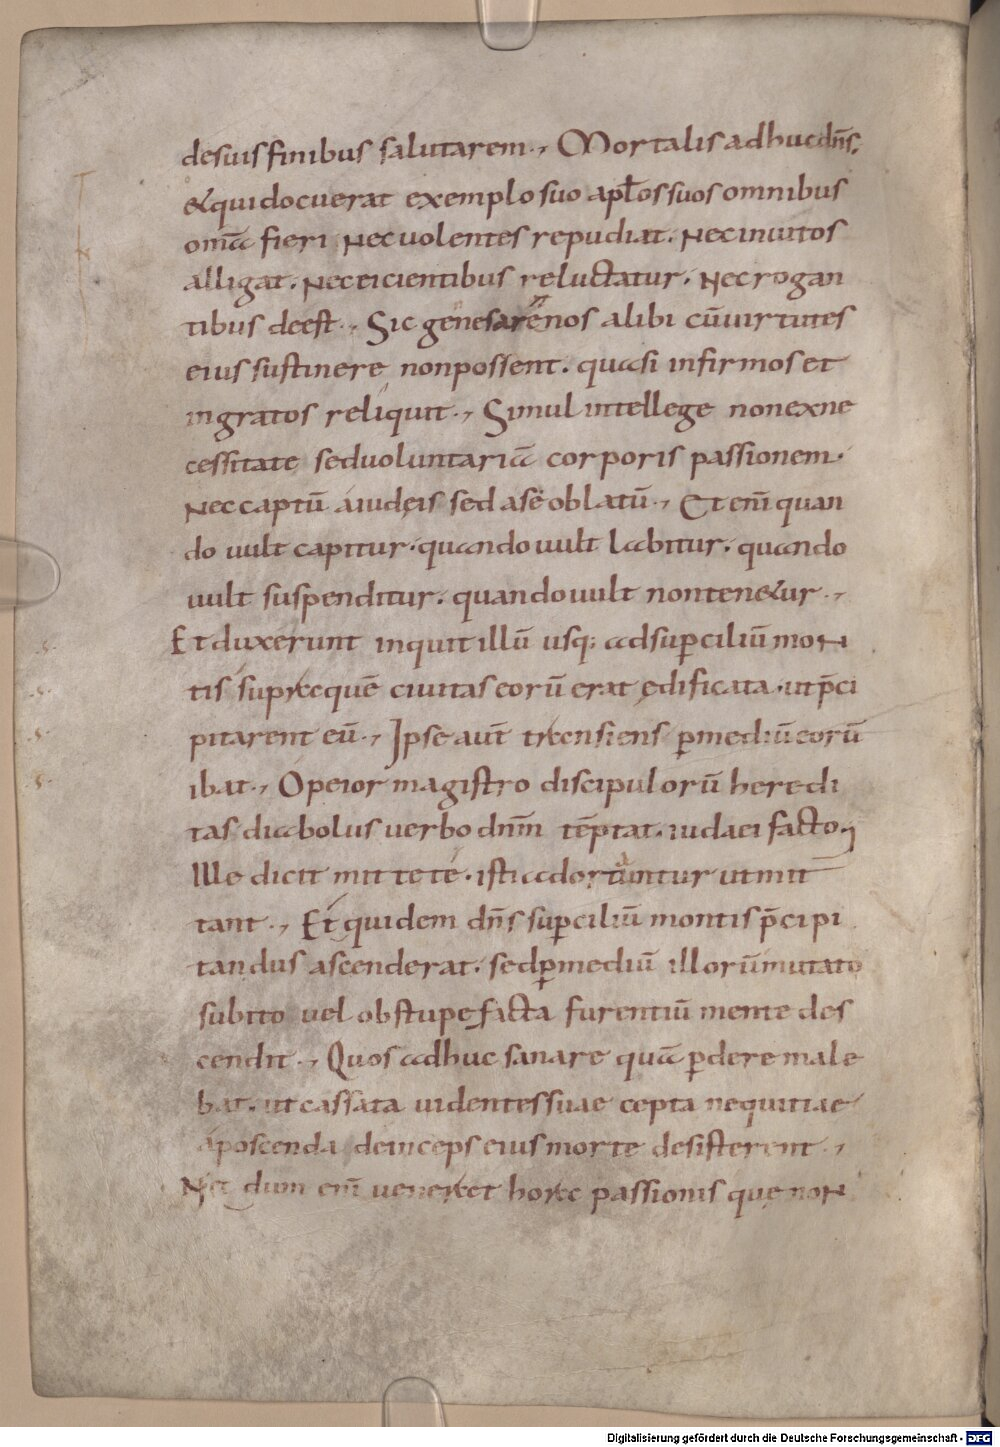 desuis finibus salutarem., Mortalis adhuc dn̄s.
&qui docuerat exemplo suo apl̄os suos omnibus
om̄a fieri Nec uolentes repudiat. Nec inuitos
alligat. Nec eicientibus reluctatur. Nec rogan
tibus deest., Sic genesarenos alibi cū uirtutes
eius sustinere non possent. quasi infirmos et
ingratos reliquit., Simul intellege non exne
cessitate sed uoluntariā corporis passionem.
Nec captū a iudeis sed a se oblatū., Et eni̅ quan
do uult capitur. quando uult labitur. quando
uult suspenditur. quando uult non ten&ur.,
Et duxerunt inquit illū usq; ad sup̄cilium mon
tis supra quē ciuitas eorū erat ędificata. ut p̄ci
pitarent eū., Ipse aut̄ transiens p̄ mediū eorū
ibat., O peior magistro discipulorū heredi
tas diabolus uerbo dn̄m tēptat. iudaei facto.
Ille dicit mitte té. isti adoriuntur ut mit
tant., Et quidem dn̄s sup̄ciliū montis p̄cipi
tandus ascenderat. sed p̄ mediū illorū mutato
subito uel obstupefacta furentiū mente des
cendit., Quos adhuc sanare quā p̄dere male
bat. ut cassata uidentes suae cepta nequitiae
a poscenda deinceps eius morte desisterent.,
Nec dum eni̅ uenerat hora passionis quę non
Digitalisierung gefördert durch die Deutsche Forschungsgemeinschaft - DFG